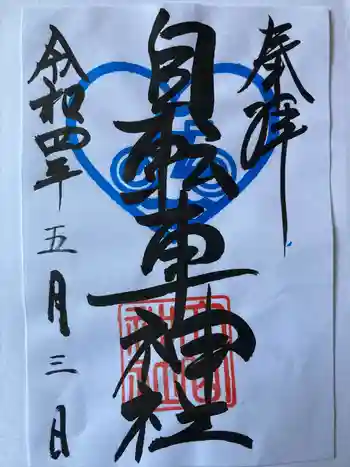 奉拝
自転車神社
令和四年
五月三日